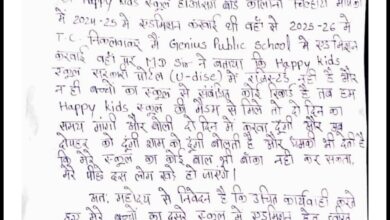 Happy Kids स्कूल हाऊसिंग बोर्ड कालोनी
में 2024-25 में एडमिशन करवाई थी वहाँ से 2025-26 में
T.C. निकलवाकर में Genius Public School में एडमिशन
करवाई वहाँ पर M.D Sir ने बताया कि Happy Kids
स्कूल सरकारी पोर्टल (U-disc) में रजिस्टर्ड नही है और
न ही बच्चों का स्कूल से संबंधित कोई रिकार्ड है तब हम
Happy Kids स्कूल की मैडम से मिले तो दो दिन का
समय मांगी और बोली दो दिन में करवा दूंगी और अब
दोपहर को दूंगी शाम को दूंगी बोलती है और धमकी भी देती है
कि मेरे स्कूल का कोई बाल भी बांका नही कर सकता,
मेरे पीछे दस लोग खड़े हो जाएंगे।
अतः महोदय से निवेदन है कि उचित कार्यवाही करते
हुए मेरे बच्चों का दूसरे स्कूल में एडमिशन हेतु